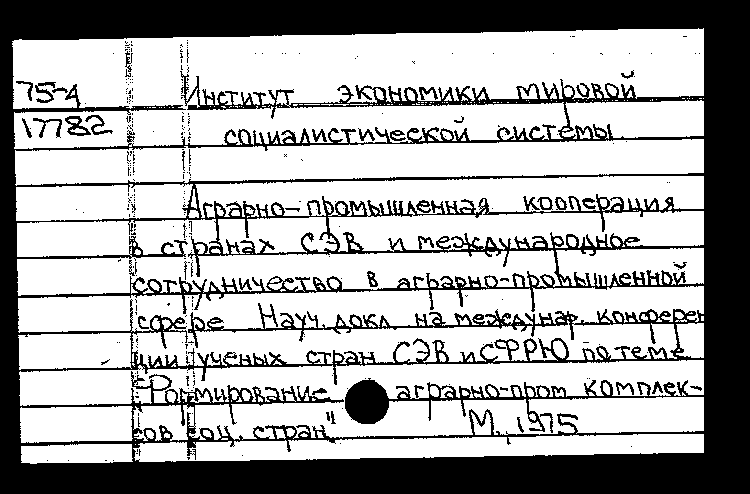 75-4 Институт экономики мировой
17782 социалистической системы
Аграрно-промышленная кооперация
в странах СЭВ и международное
сотрудничество в аграрно-промышленной
сфере. Науч. докл. на междунар. конферен
ции ученых стран СЭВ и СФРЮ по теме
"Формирование аграрно-пром. комплек-
сов соц. стран" М., 1975